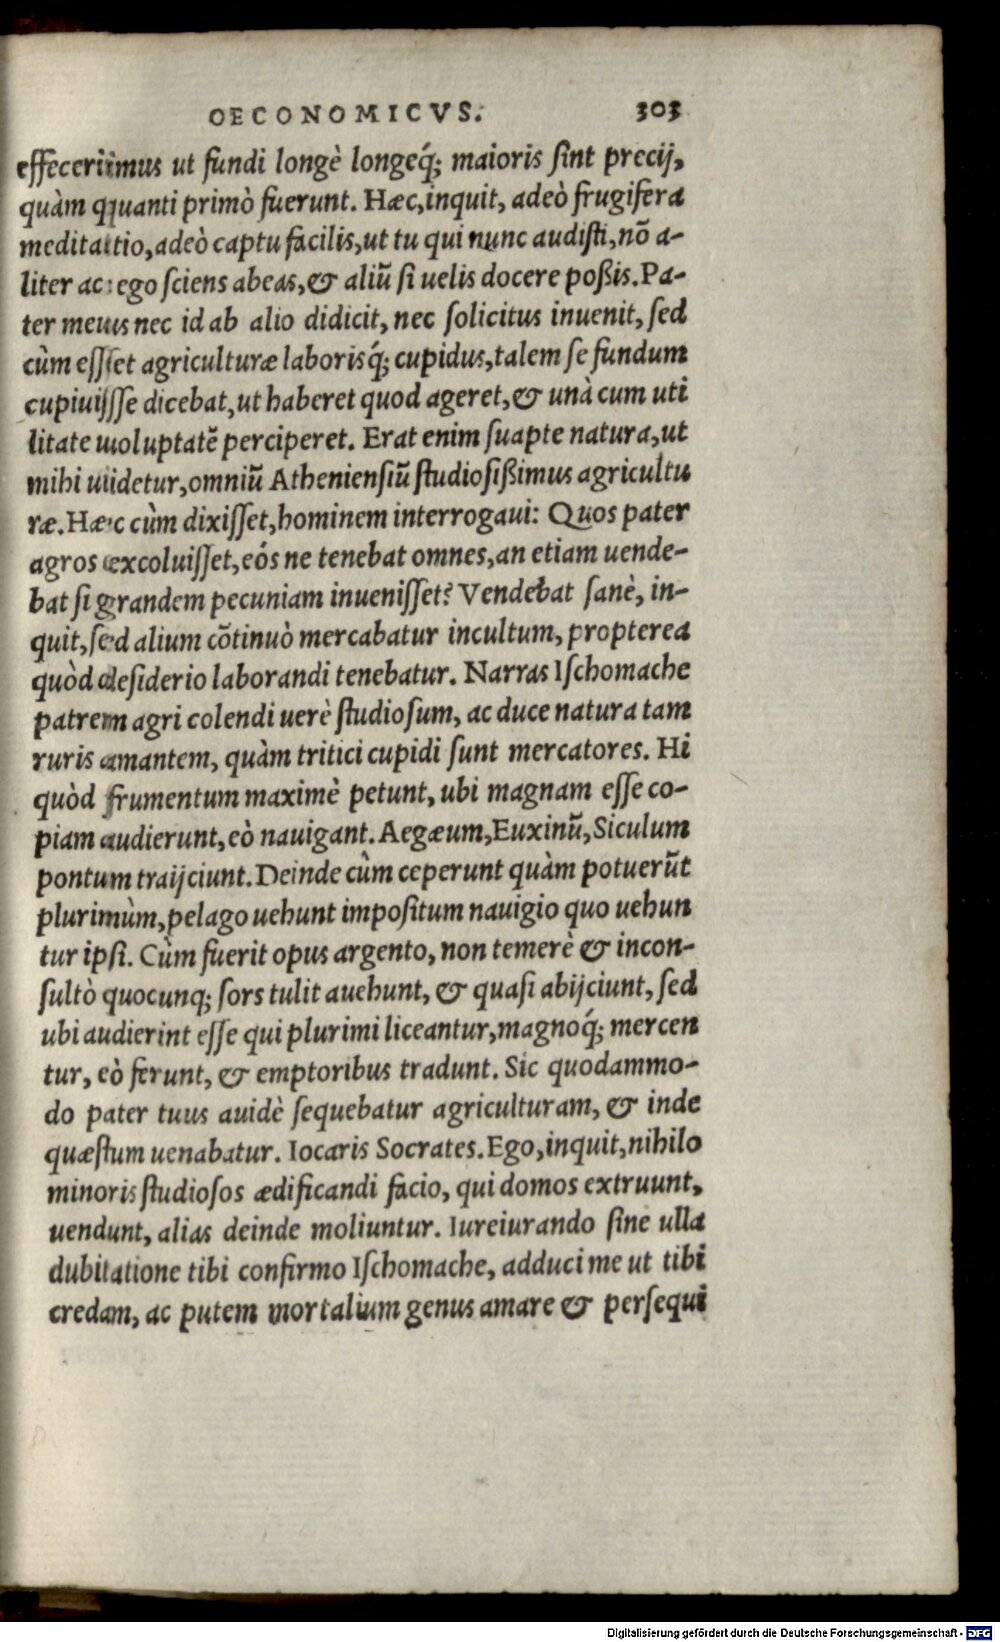 OECONOMICVS. 303
effecerimus ut fundi longè longeq́; maioris ſint precij,
quàm quanti primò fuerunt. Hæc, inquit, adeò frugifera
meditatio, adeò captu facilis, ut tu qui nunc audiſti, nõ a-
liter ac ego ſciens abeas, & aliũ ſi uelis docere poßis. Pa-
ter meus nec id ab alio didicit, nec ſolicitus inuenit, ſed
cùm eſſet agriculturæ laborisq́; cupidus, talem ſe fundum
cupiuiſſe dicebat, ut haberet quod ageret, & unà cum uti
litate uoluptatẽ perciperet. Erat enim ſuapte natura, ut
mihi uidetur, omniũ Athenienſiũ ſtudioſißimus agricultu
ræ. Hæc cùm dixiſſet, hominem interrogaui: Quos pater
agros excoluiſſet, eós ne tenebat omnes, an etiam uende-
bat ſi grandem pecuniam inueniſſet? Vendebat ſanè, in-
quit, ſed alium cõtinuò mercabatur incultum, propterea
quòd deſiderio laborandi tenebatur. Narras Iſchomache
patrem agri colendi uerè ſtudioſum, ac duce natura tam
ruris amantem, quàm tritici cupidi ſunt mercatores. Hi
quòd frumentum maximè petunt, ubi magnam eſſe co-
piam audierunt, eò nauigant. Aegæum, Euxinũ, Siculum
pontum traijciunt. Deinde cùm ceperunt quàm potuerũt
plurimùm, pelago uehunt impoſitum nauigio quo uehun
tur ipſi. Cùm fuerit opus argento, non temerè & incon-
ſultò quocunq; ſors tulit auehunt, & quaſi abijciunt, ſed
ubi audierint eſſe qui plurimi liceantur, magnoq́; mercen
tur, eò ferunt, & emptoribus tradunt. Sic quodammo-
do pater tuus auidè ſequebatur agriculturam, & inde
quæſtum uenabatur. Iocaris Socrates. Ego, inquit, nihilo
minoris ſtudioſos ædificandi facio, qui domos extruunt,
uendunt, alias deinde moliuntur. Iureiurando ſine ulla
dubitatione tibi confirmo Iſchomache, adduci me ut tibi
credam, ac putem mortalium genus amare & perſequi
Digitalisierung gefördert durch die Deutsche Forschungsgemeinschaft - DFG